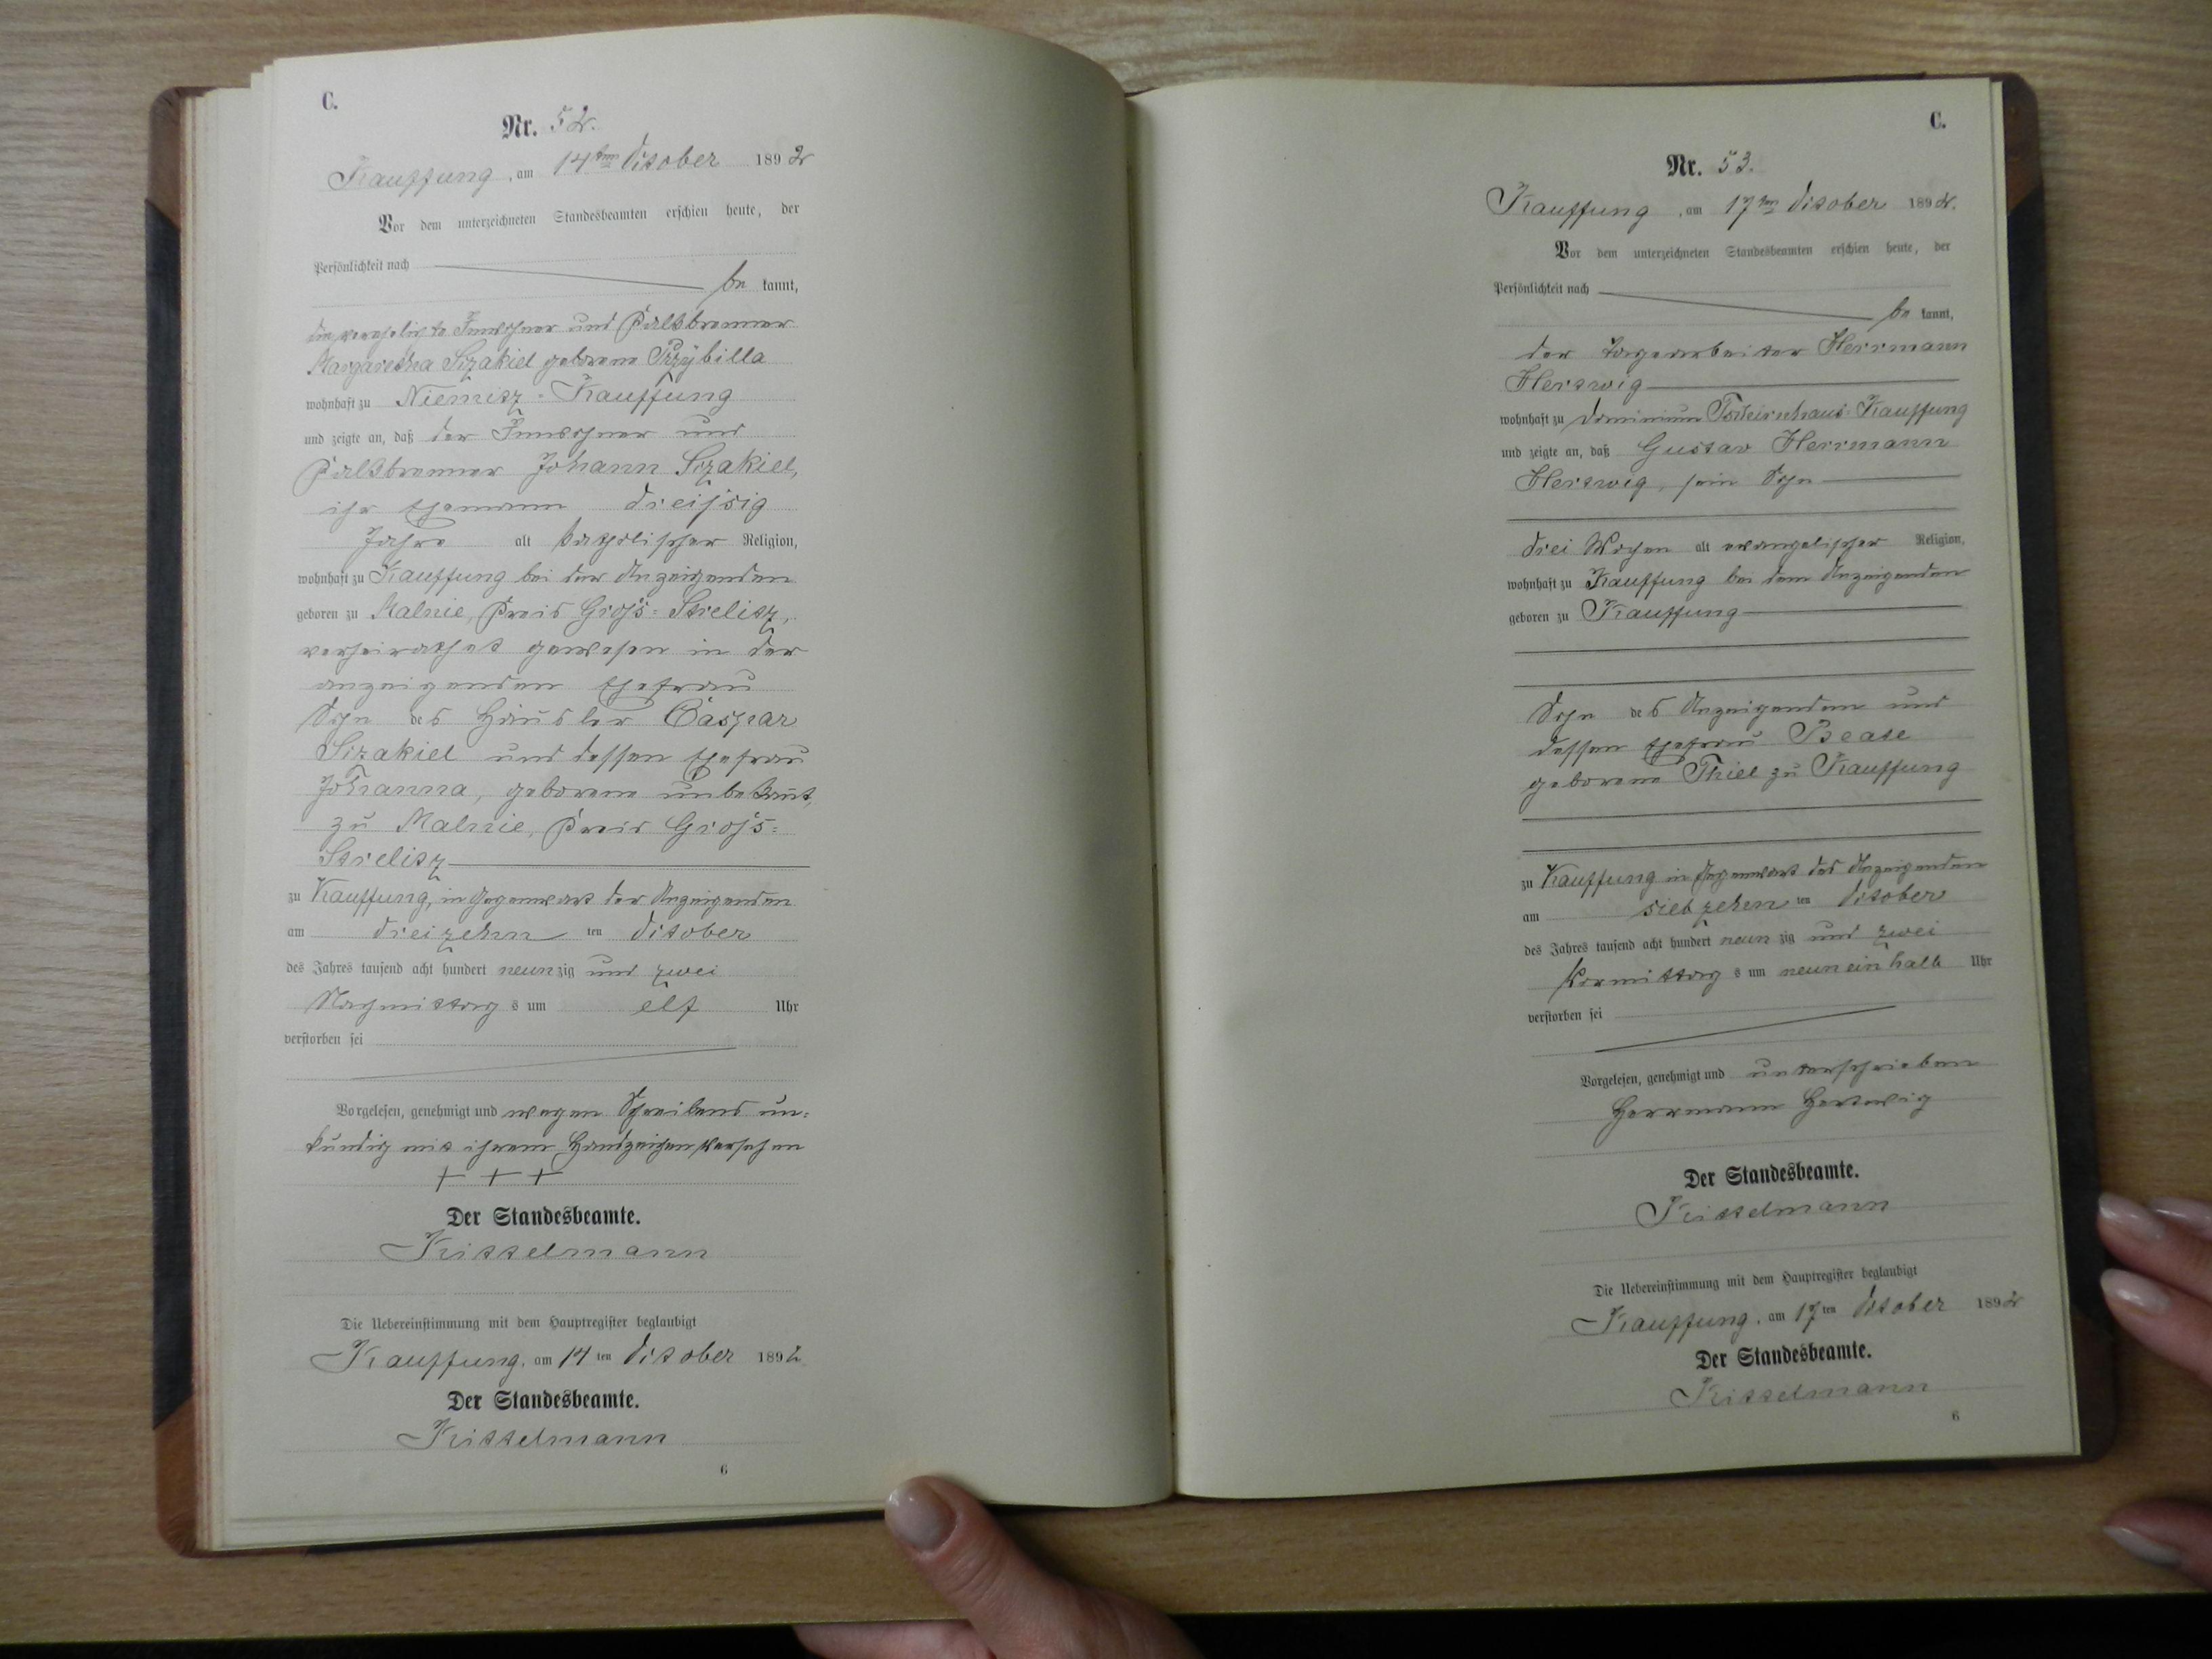 C.
Nr. 52.
Kauffung, am 14ten October 1892
Vor dem unterzeichneten Standesbeamten erschien heute, der
Persönlichkeit nach
be kannt,
die verehelichte Inwohner und Kalkbrenner
Margaretha Szakiel geborene Przybilla
wohnhaft zu Niemitz-Kauffung
und zeigte an, daß der Inwohner und
Kalkbrenner Johann Szakiel,
ihr Ehemann dreißig
Jahre alt katholischer Religion,
wohnhaft zu Kauffung bei der Anzeigenden
geboren zu Malnie, Kreis Groß-Strelitz,
verheirathet gewesen in der
anzeigenden Ehefrau
Sohn des Häusler Caspar
Szakiel und dessen Ehefrau
Johanna, geborene unbekannt,
zu Malnie, Kreis Groß-
Strelitz
zu Kauffung, in Gegenwart der Anzeigenden
am dreizehn ten October
des Jahres tausend acht hundert neunzig und zwei
Nachmittag s um elf Uhr
verstorben sei
Vorgelesen, genehmigt und wegen Schreibens un-
kundig mit ihrem Handzeichen versehen
+ + +
Der Standesbeamte.
Kittelmann
Die Uebereinstimmung mit dem Hauptregister beglaubigt
Kauffung, am 14 ten October 1892
Der Standesbeamte.
Kittelmann
6
C.
Nr. 53.
Kauffung, am 17ten October 1892.
Vor dem unterzeichneten Standesbeamten erschien heute, der
Persönlichkeit nach
be kannt,
der Tagearbeiter Herrmann
Hertwig
wohnhaft zu Dominium Tschirnhaus-Kauffung
und zeigte an, daß Gustav Herrmann
Hertwig, sein Sohn
drei Wochen alt evangelischer Religion,
wohnhaft zu Kauffung bei dem Anzeigenden
geboren zu Kauffung
Sohn des Anzeigenden und
dessen Ehefrau Beate
geborene Thiel zu Kauffung
zu Kauffung in Gegenwart des Anzeigenden
am siebzehn ten October
des Jahres tausend acht hundert neun zig und zwei
Vormittag s um neun ein halb Uhr
verstorben sei
Vorgelesen, genehmigt und unterschrieben
Herrmann Hertwig
Der Standesbeamte.
Kittelmann
Die Uebereinstimmung mit dem Hauptregister beglaubigt
Kauffung, am 17 ten October 1892
Der Standesbeamte.
Kittelmann
6